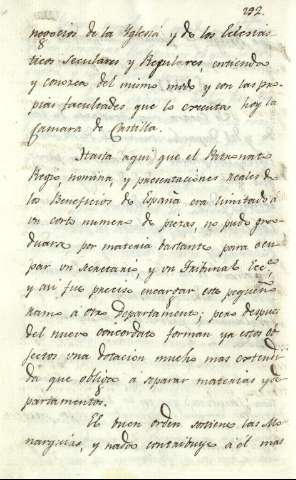 292.
negocios de la Yglesia y de los Eclesiás
8
ticos Seculares y Regulares, entienda
y conozca del mismo modo y con las pro
pias facultades que lo executa hoy la
Camara de Castilla.
Hasta aqui que el Patronato
Regio nomina, y presentaciones reales de
los Beneficios de España era limitado á
un corto numero de piezas, no pudo pro
ducirse por materia bastante para ocu
par un secretario, y un Tribunal Ecco
y asi fue preciso encargar este pequeño
ramo á otro Departamento; pero despues
del nuevo concordato forman ya estos ob
jectos una dotacion mucho mas extendi
da que obliga á separar materias y de
partamentos.
El buen orden sostiene las Mo
narquias, y nada contribuye á él mas